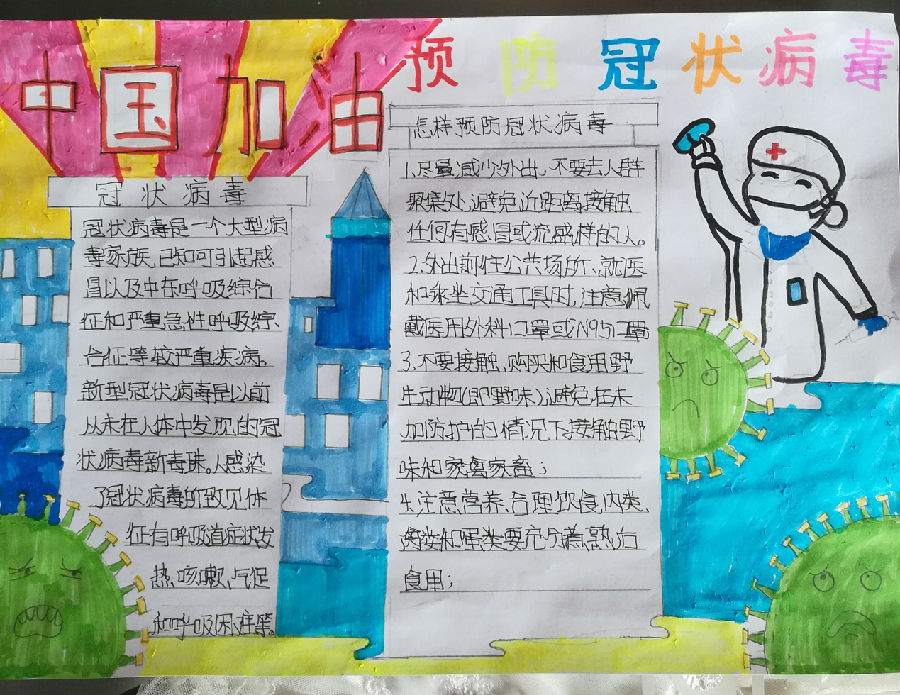 中国加油
预防冠状病毒
冠状病毒
冠状病毒是一个大型病
毒家族,已知可引起感
冒以及中东呼吸综合
征和严重急性呼吸综
合征等较严重疾病。
新型冠状病毒是以前
从未在人体中发现的冠
状病毒新毒珠。人感染
了冠状病毒的致见体
征有呼吸道症状发
热,咳嗽,气促
和呼吸困难等。
怎样预防冠状病毒
1.尽量减少外出,不要去人群
聚集处,避免近距离接触
任何有感冒或流感样的人。
2.外出前往公共场所、就医
和乘坐交通工具时,注意佩
戴医用外科口罩或N95口罩
3.不要接触、购买和食用野
生动物(即野味),避免在未
加防护的情况下接触野
味和家禽家畜;
4.注意营养,合理饮食,肉类、
禽类和蛋类要充分煮熟后
食用;